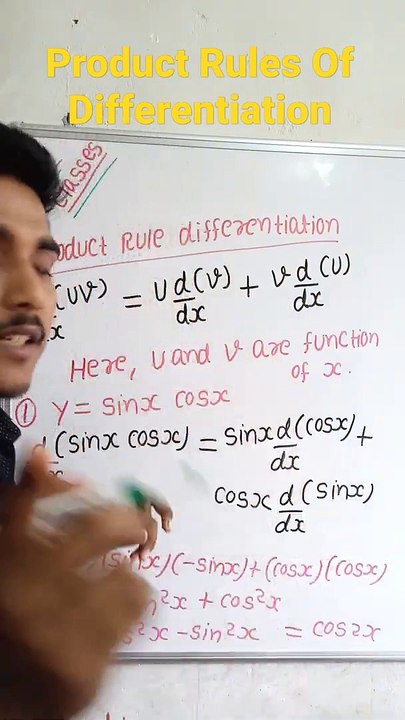 Product Rules Of
Differentiation
classes
oduct Rule differentiation
(UV) = U d/dx (V) + V d/dx (U)
Here, U and V are function
of x.
① Y = sinx cosx
(sinx cosx) = sinx d/dx (cosx) +
cosx d/dx (sinx)
(sinx)(-sinx)+(cosx)(cosx)
n²x + cos²x
s²x - sin²x = cos2x